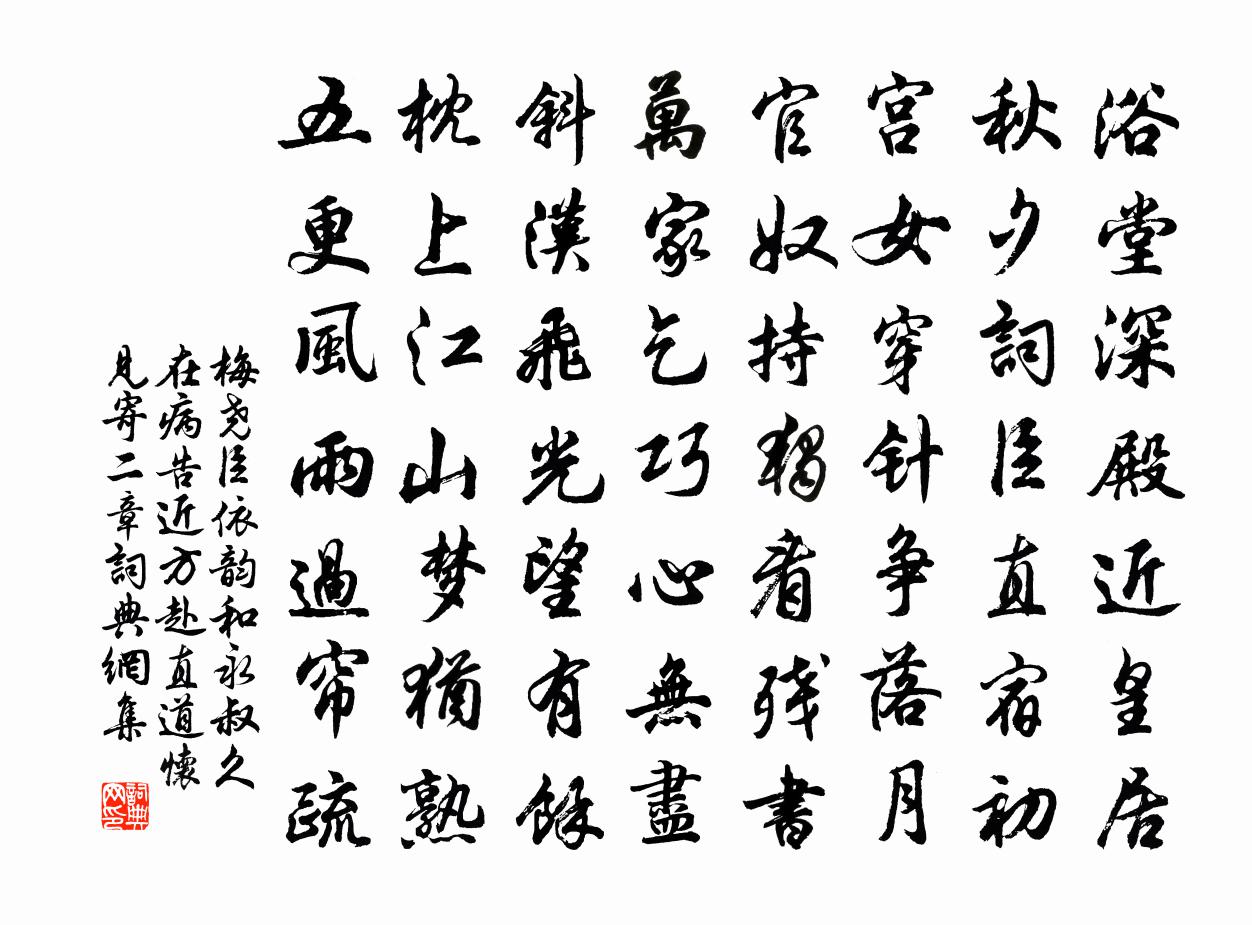 浴堂深殿近皇居
秋夕詞臣直宿初
宮女穿针争落月
官奴持獨看残書
萬家乞巧心無盡
斜漢飛光望有餘
枕上江山梦猶熟
五更風雨過帘疏
梅尧臣依韵和永叔久
在病告近方赴直道懷
見寄二章詞典網集
詞典网印